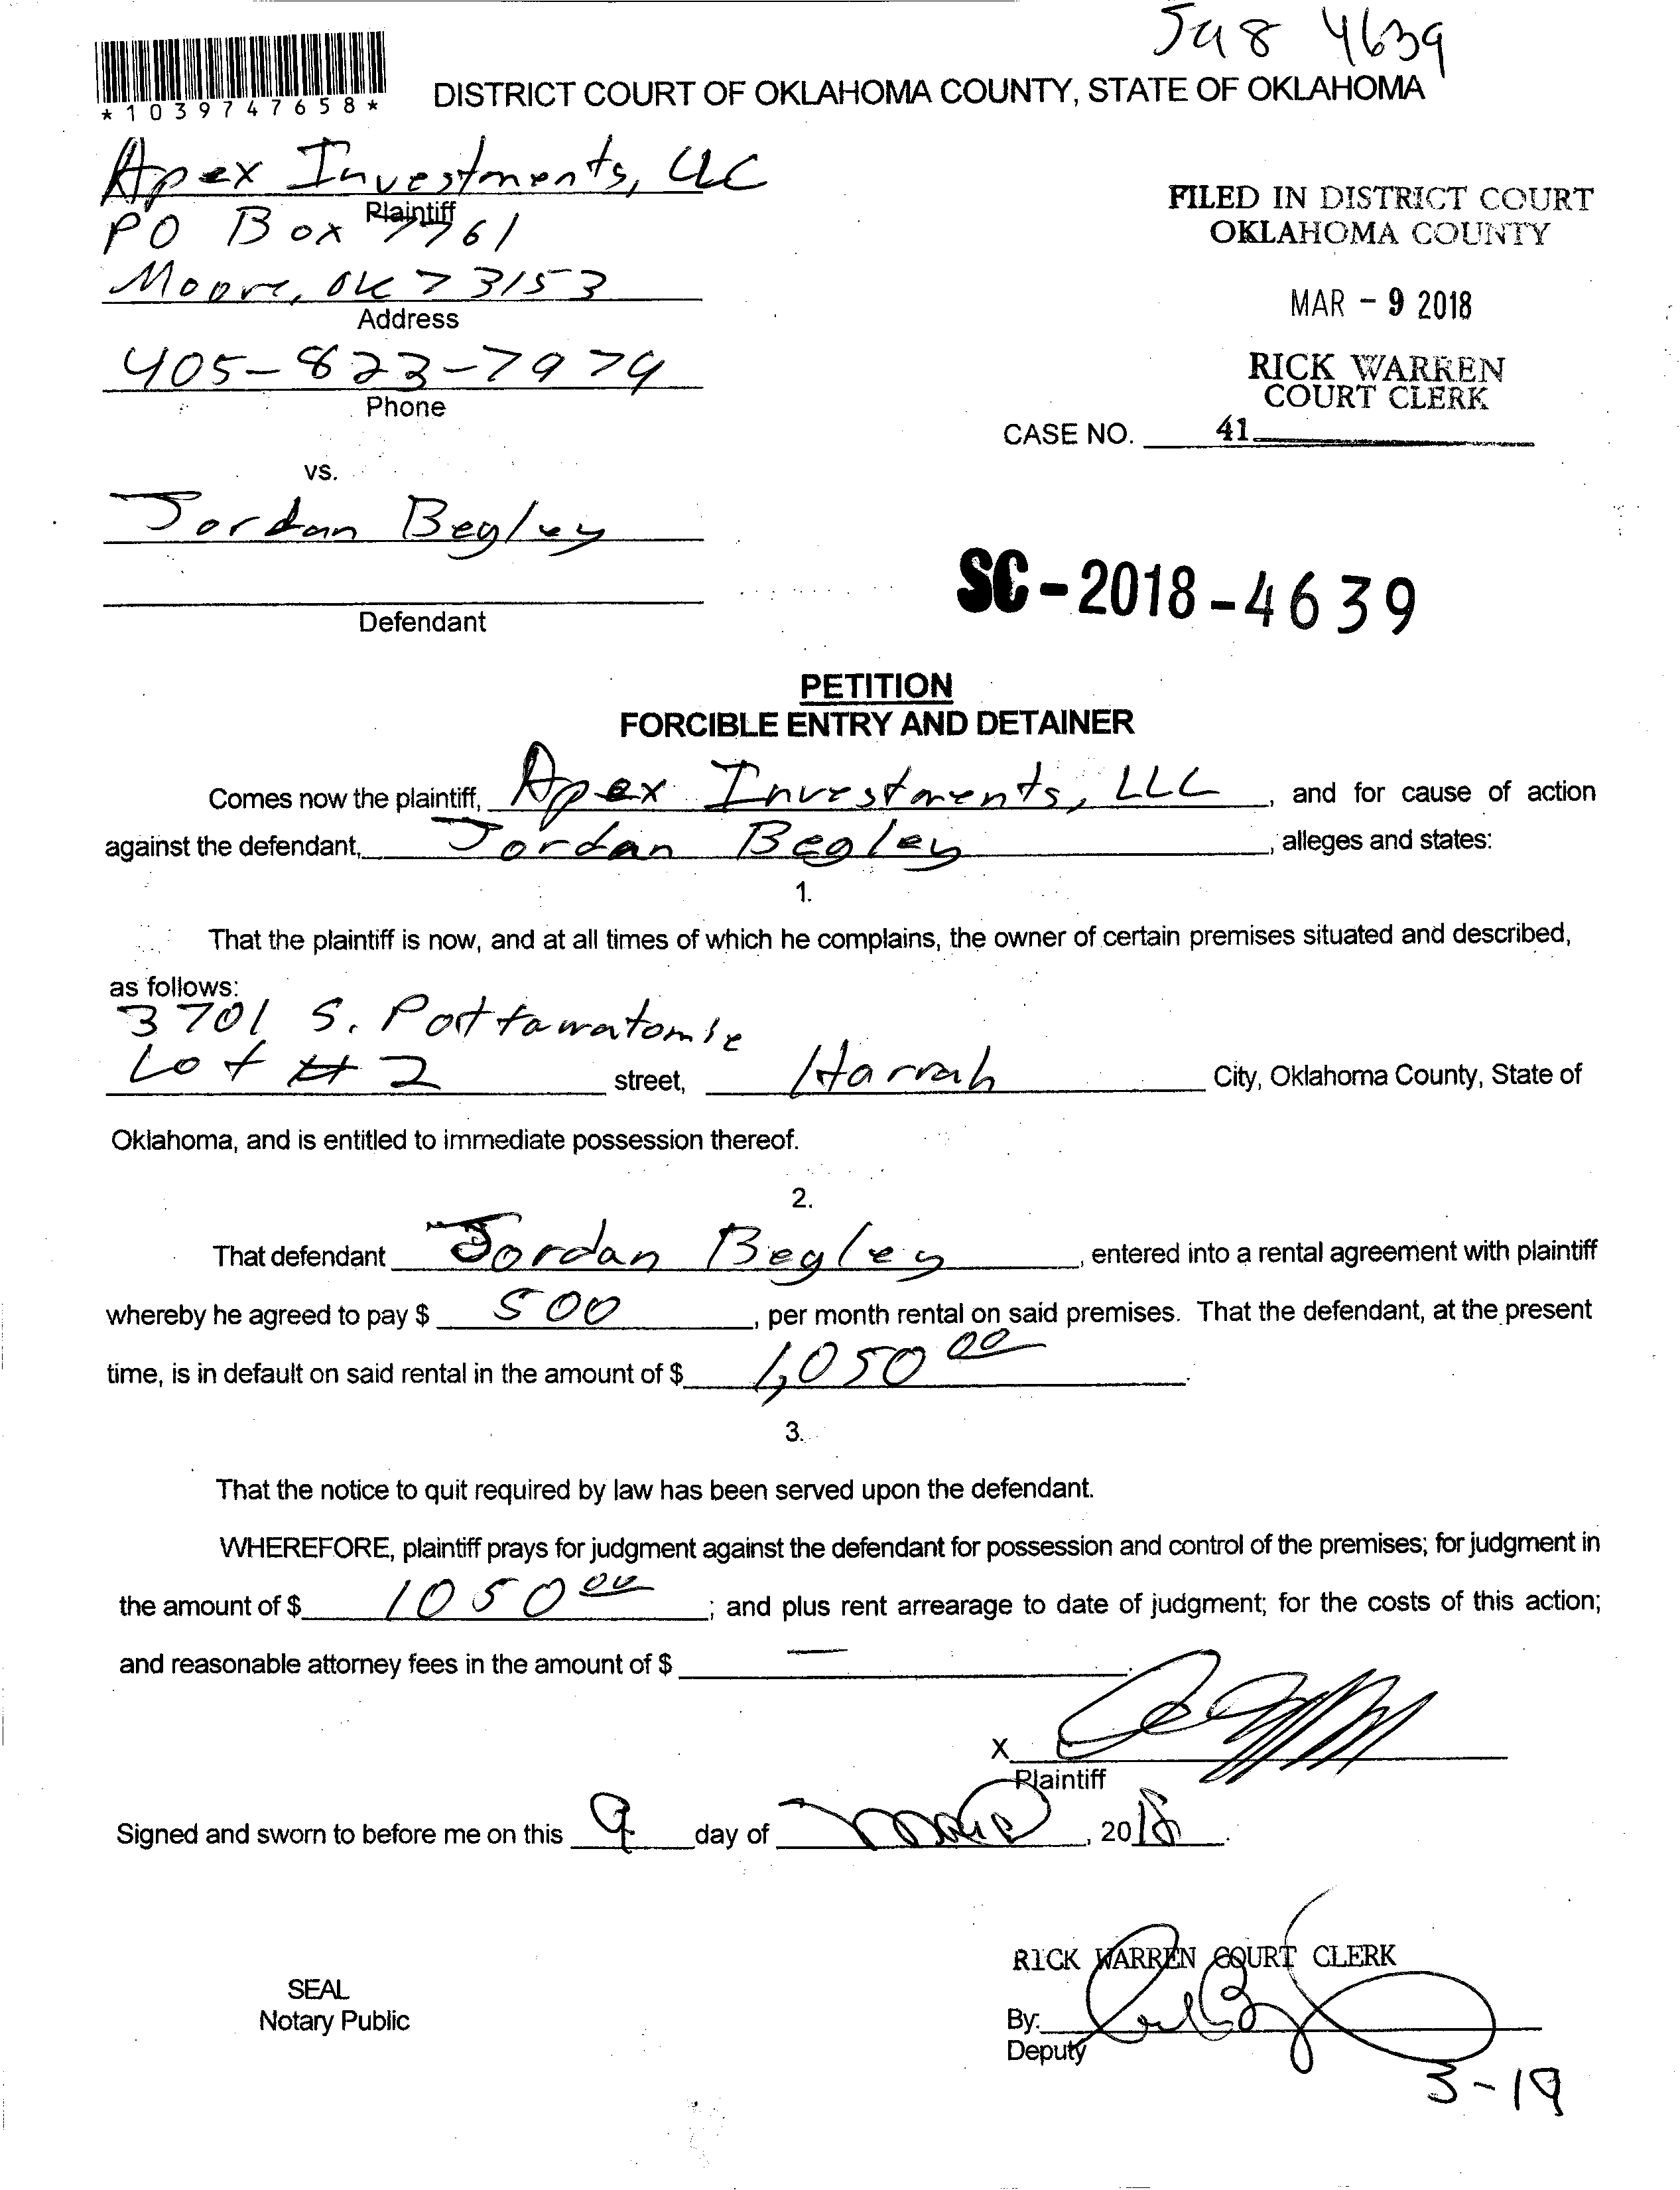 Ja8 4639
*1039747658*
DISTRICT COURT OF OKLAHOMA COUNTY, STATE OF OKLAHOMA
Apex Investments, LLC
Plaintiff
PO Box 7761
Moore, OK 73153
Address
405-823-7979
Phone
FILED IN DISTRICT COURT
OKLAHOMA COUNTY
MAR - 9 2018
RICK WARREN
COURT CLERK
CASE NO. 41
vs.
Jordan Begley
Defendant
SC-2018-4639
PETITION
FORCIBLE ENTRY AND DETAINER
Comes now the plaintiff, Apex Investments, LLC, and for cause of action
against the defendant, Jordan Begley, alleges and states:
1.
That the plaintiff is now, and at all times of which he complains, the owner of certain premises situated and described,
as follows:
3701 S. Pottawatomie
Lot #2 street, Harrah City, Oklahoma County, State of
Oklahoma, and is entitled to immediate possession thereof.
2.
That defendant Jordan Begley, entered into a rental agreement with plaintiff
whereby he agreed to pay $ 500, per month rental on said premises. That the defendant, at the present
time, is in default on said rental in the amount of $ 1,050 00.
3.
That the notice to quit required by law has been served upon the defendant.
WHEREFORE, plaintiff prays for judgment against the defendant for possession and control of the premises; for judgment in
the amount of $ 1050 00; and plus rent arrearage to date of judgment; for the costs of this action;
and reasonable attorney fees in the amount of $ —.
X
Plaintiff
Signed and sworn to before me on this 9 day of March, 2018.
RICK WARREN COURT CLERK
SEAL
Notary Public
By:
Deputy
3-19